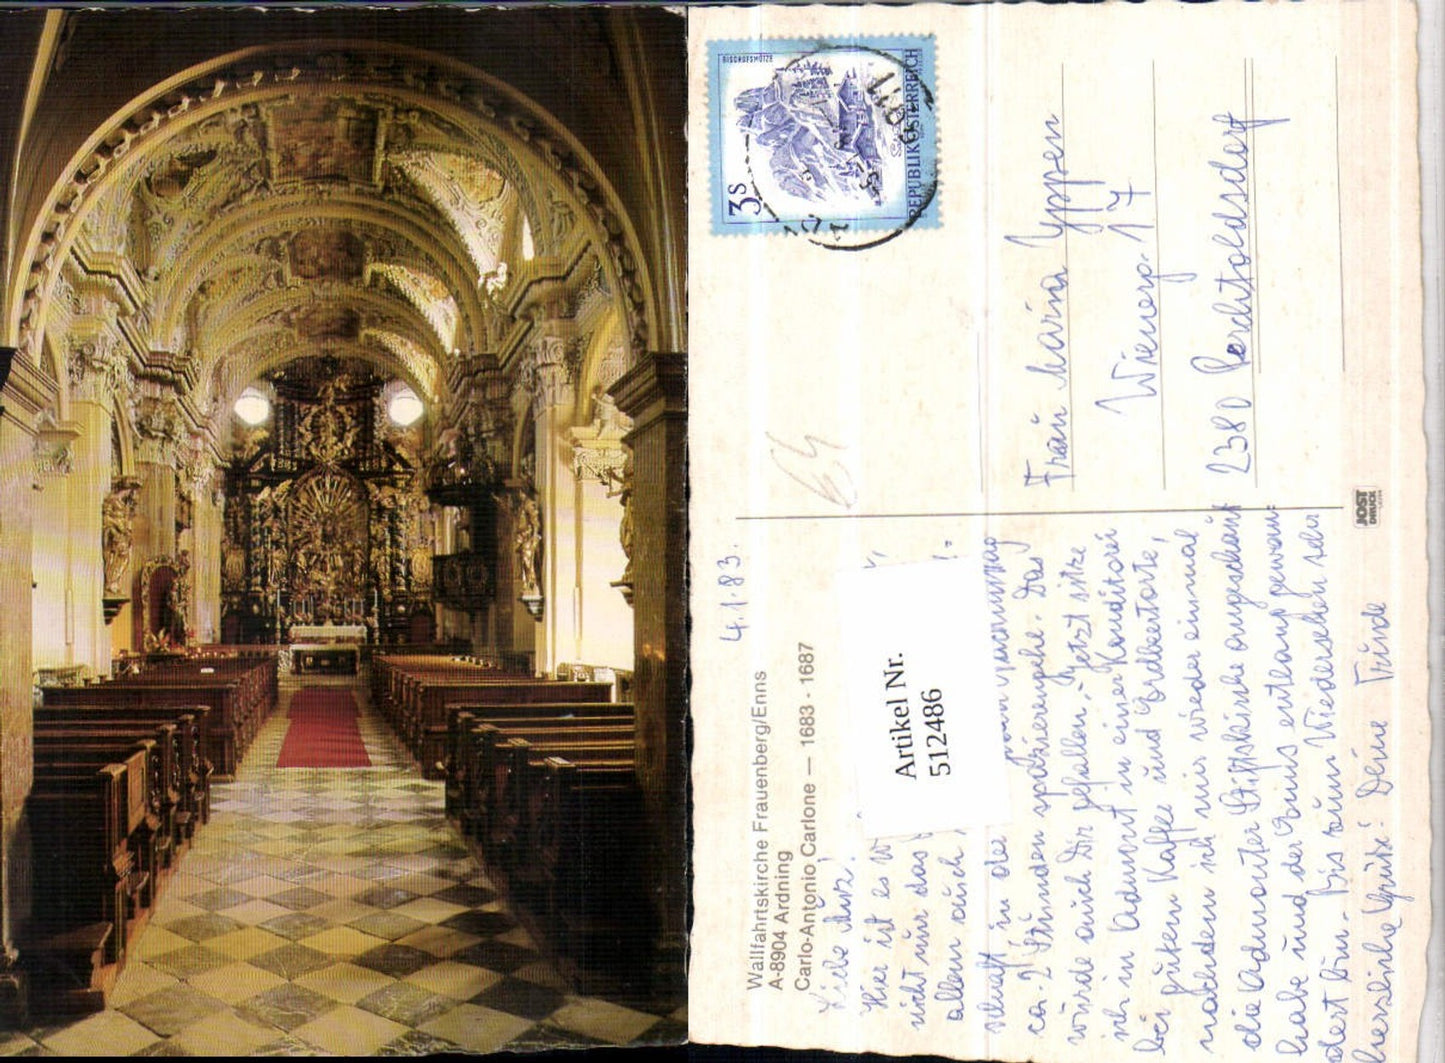 BISCHOFSMÜTZE
3 S
REPUBLIK ÖSTERREICH
64
4.1.83.
Wallfahrtskirche Frauenberg/Enns
A-8904 Ardning
Carlo-Antonio Carlone — 1683 - 1687
Artikel Nr.
512486
Liebe
Hier ist es w
nicht nur das
allem auch
schaft in der
ca. 2 Stunden spazierengehe. Das
würde auch Dir gefallen. Jetzt sitze
ich in Admont in einer Konditorei
bei gutem Kaffee und Erdbeertorte,
nachdem ich mir wieder einmal
die Admonter Stiftskirche angeschaut
habe und der Enns entlang gewan-
dert bin. Bis zum Wiedersehen sehr
herzliche Grüße! Deine Trude
Frau Maria Yppen
Wienerg. 17
2380 Perchtoldsdorf
JOST
DRUCK